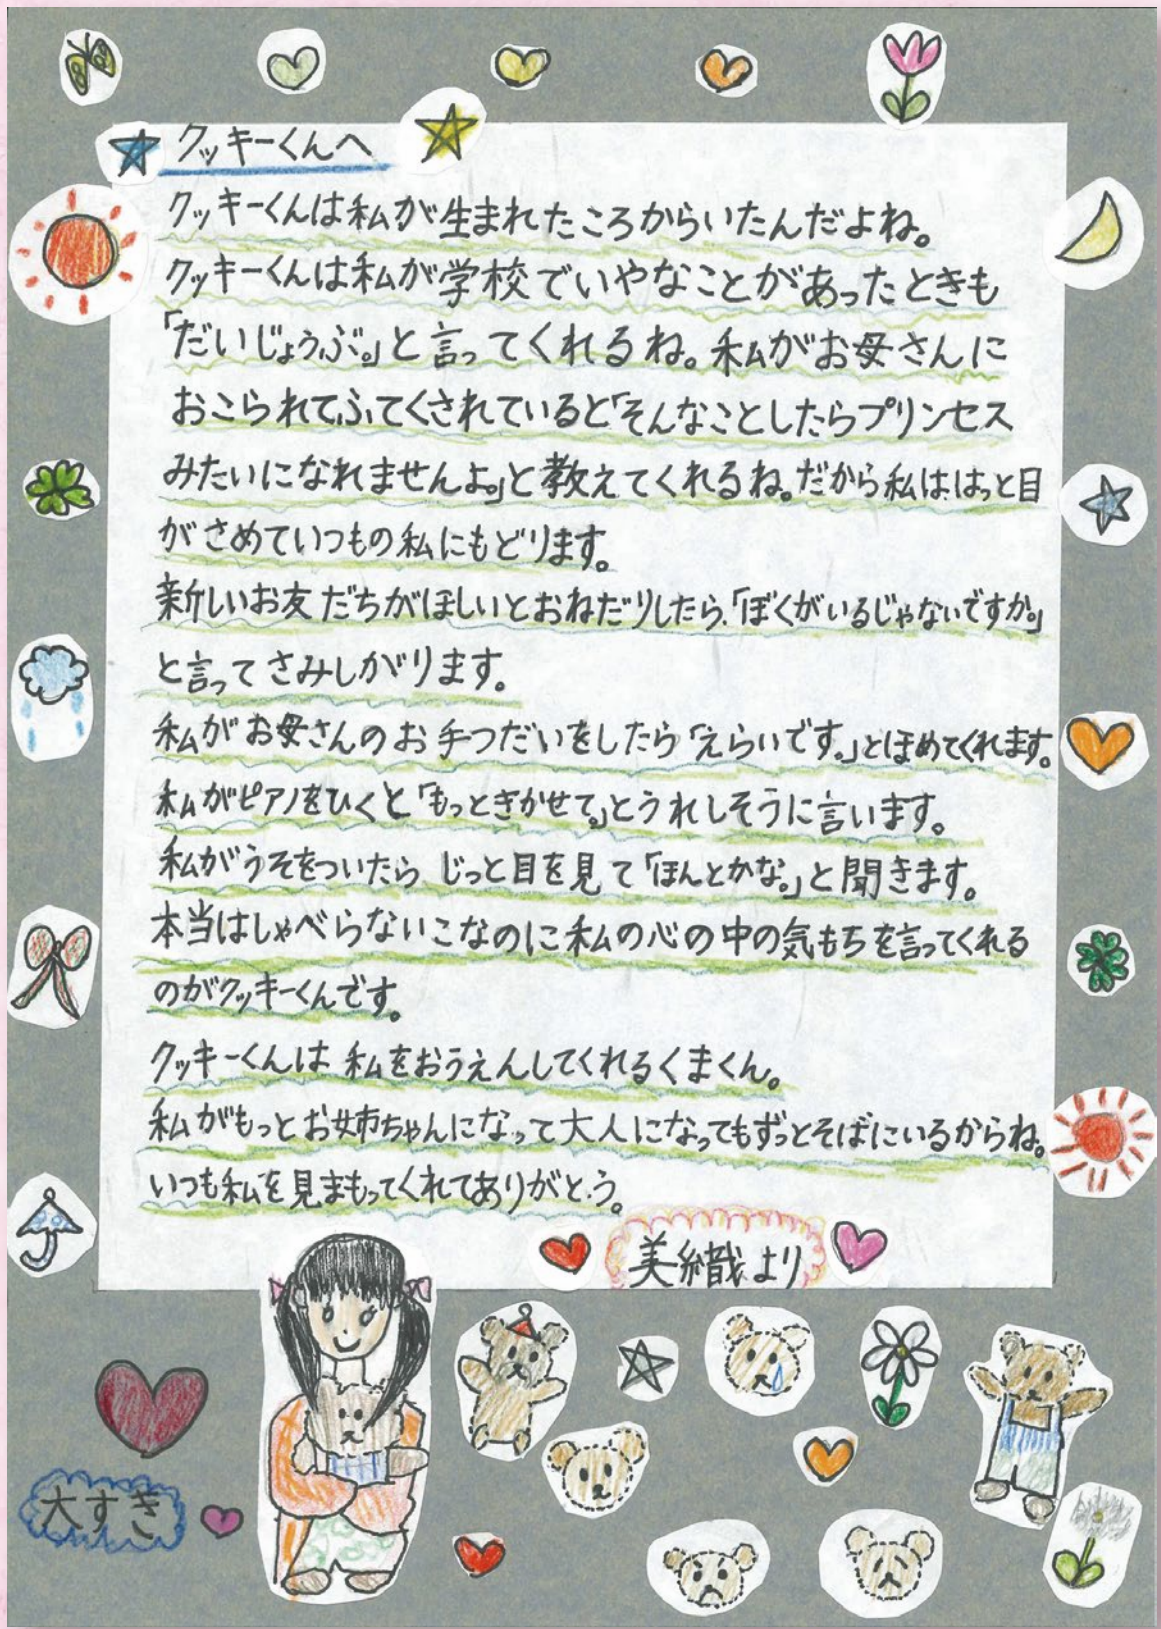 クッキーくんへ
クッキーくんは私が生まれたころからいたんだよね。
クッキーくんは私が学校でいやなことがあったときも
「だいじょうぶ。」と言ってくれるね。私がお母さんに
おこられてふてくされていると「そんなことしたらプリンセス
みたいになれませんよ。」と教えてくれるね。だから私ははっと目
がさめていつもの私にもどります。
新しいお友だちがほしいとおねだりしたら、「ぼくがいるじゃないですか。」
と言ってさみしがります。
私がお母さんのお手つだいをしたら「えらいです。」とほめてくれます。
私がピアノをひくと「もっときかせて。」とうれしそうに言います。
私がうそをついたら、じっと目を見て「ほんとかな。」と聞きます。
本当はしゃべらないこなのに私の心の中の気もちを言ってくれる
のがクッキーくんです。
クッキーくんは私をおうえんしてくれるくまくん。
私がもっとお姉ちゃんになって大人になってもずっとそばにいるからね。
いつも私を見まもってくれてありがとう。
美織より
大すき